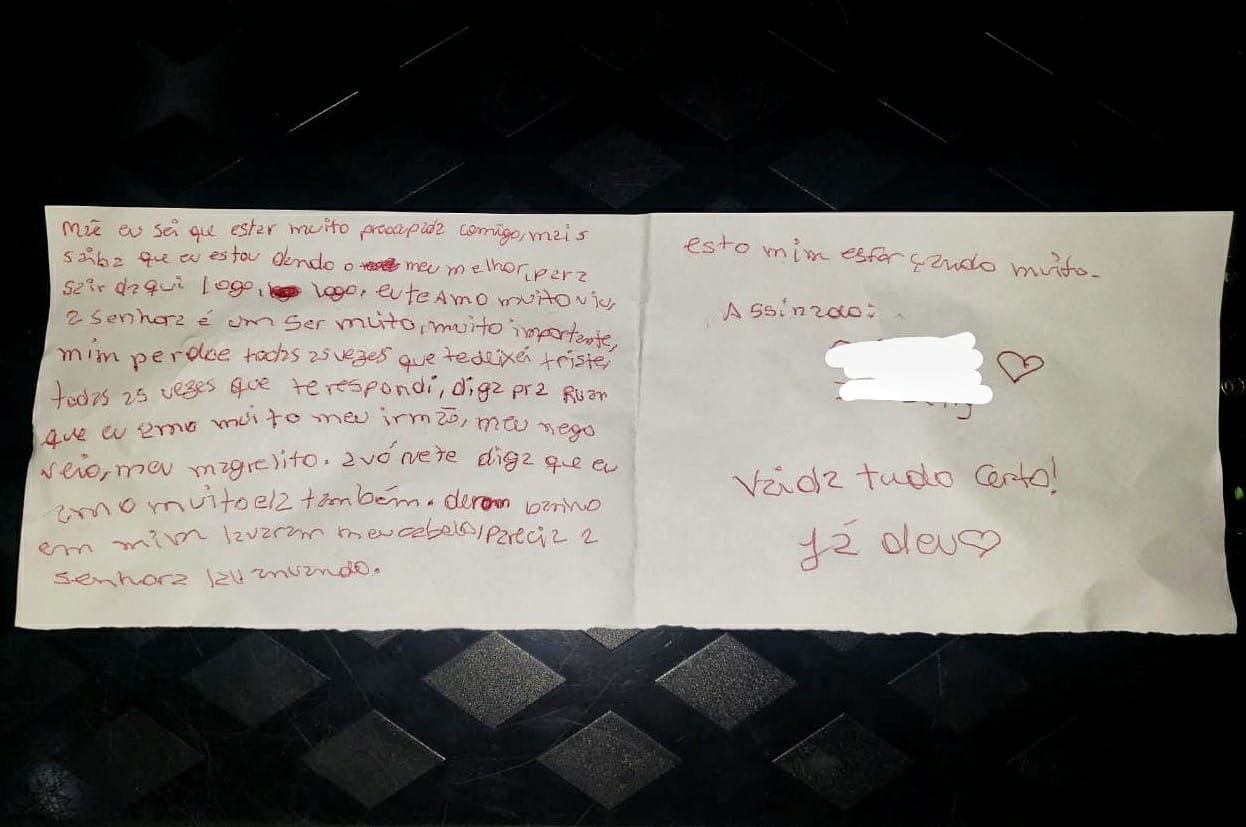 Mãe eu sei que estar muito preocupada comigo, mais
saiba que eu estou dando o meu melhor, para
sair daqui logo, logo, eu te Amo muito viu,
a senhora é um ser muito, muito importante,
mim perdoe todas as vezes que te deixei triste,
todas as vezes que te respondi, diga pra Ruan
que eu amo muito meu irmão, meu nego
veio, meu magrelito. avó nete diga que eu
amo muito ela também. deram banho
em mim lavaram meu cabelo, parecia a
senhora lavanvando.
esto mim esforçando muito.
Assinado:
Vai da tudo certo!
Já deu